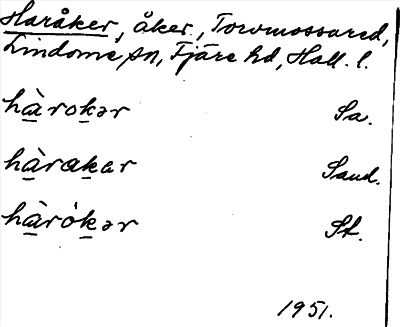 Haråker, åker, Torvmossared,
Lindome sn, Fjäre hd, Hall. l.
hàrokər Sa.
hàrakar Sand.
hàrókər St.
1951.